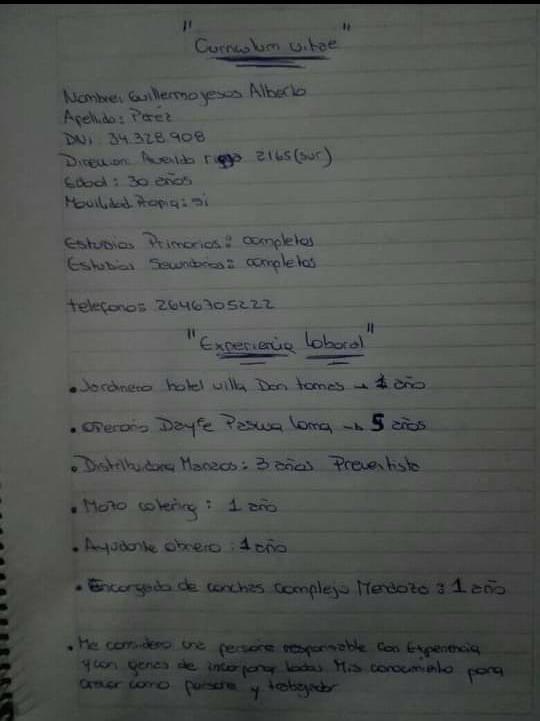 "Curriculum vitae"
Nombre: Guillermo Jesus Alberto
Apellido: Perez
DNI: 34.328.908
Direccion: 2165 (sur)
Edad: 30 años
Movilidad Propia: si
Estudios Primarios: completos
Estudios Secundarios: completos
telefono: 2646705222
"Experiencia laboral"
• Jardinero hotel villa Don tomas → 1 año
• operario Dayfe Pascua loma → 5 años
• Distribuidora Manzas: 3 años Preventista
• Mozo catering: 1 año
• Ayudante obrero: 1 año
• Encargado de canchas complejo Mendoza: 1 año
• Me considero una persona responsable Con Experiencia
y con ganas de incorporar todos Mis conocimiento para
crecer como persona y trabajador